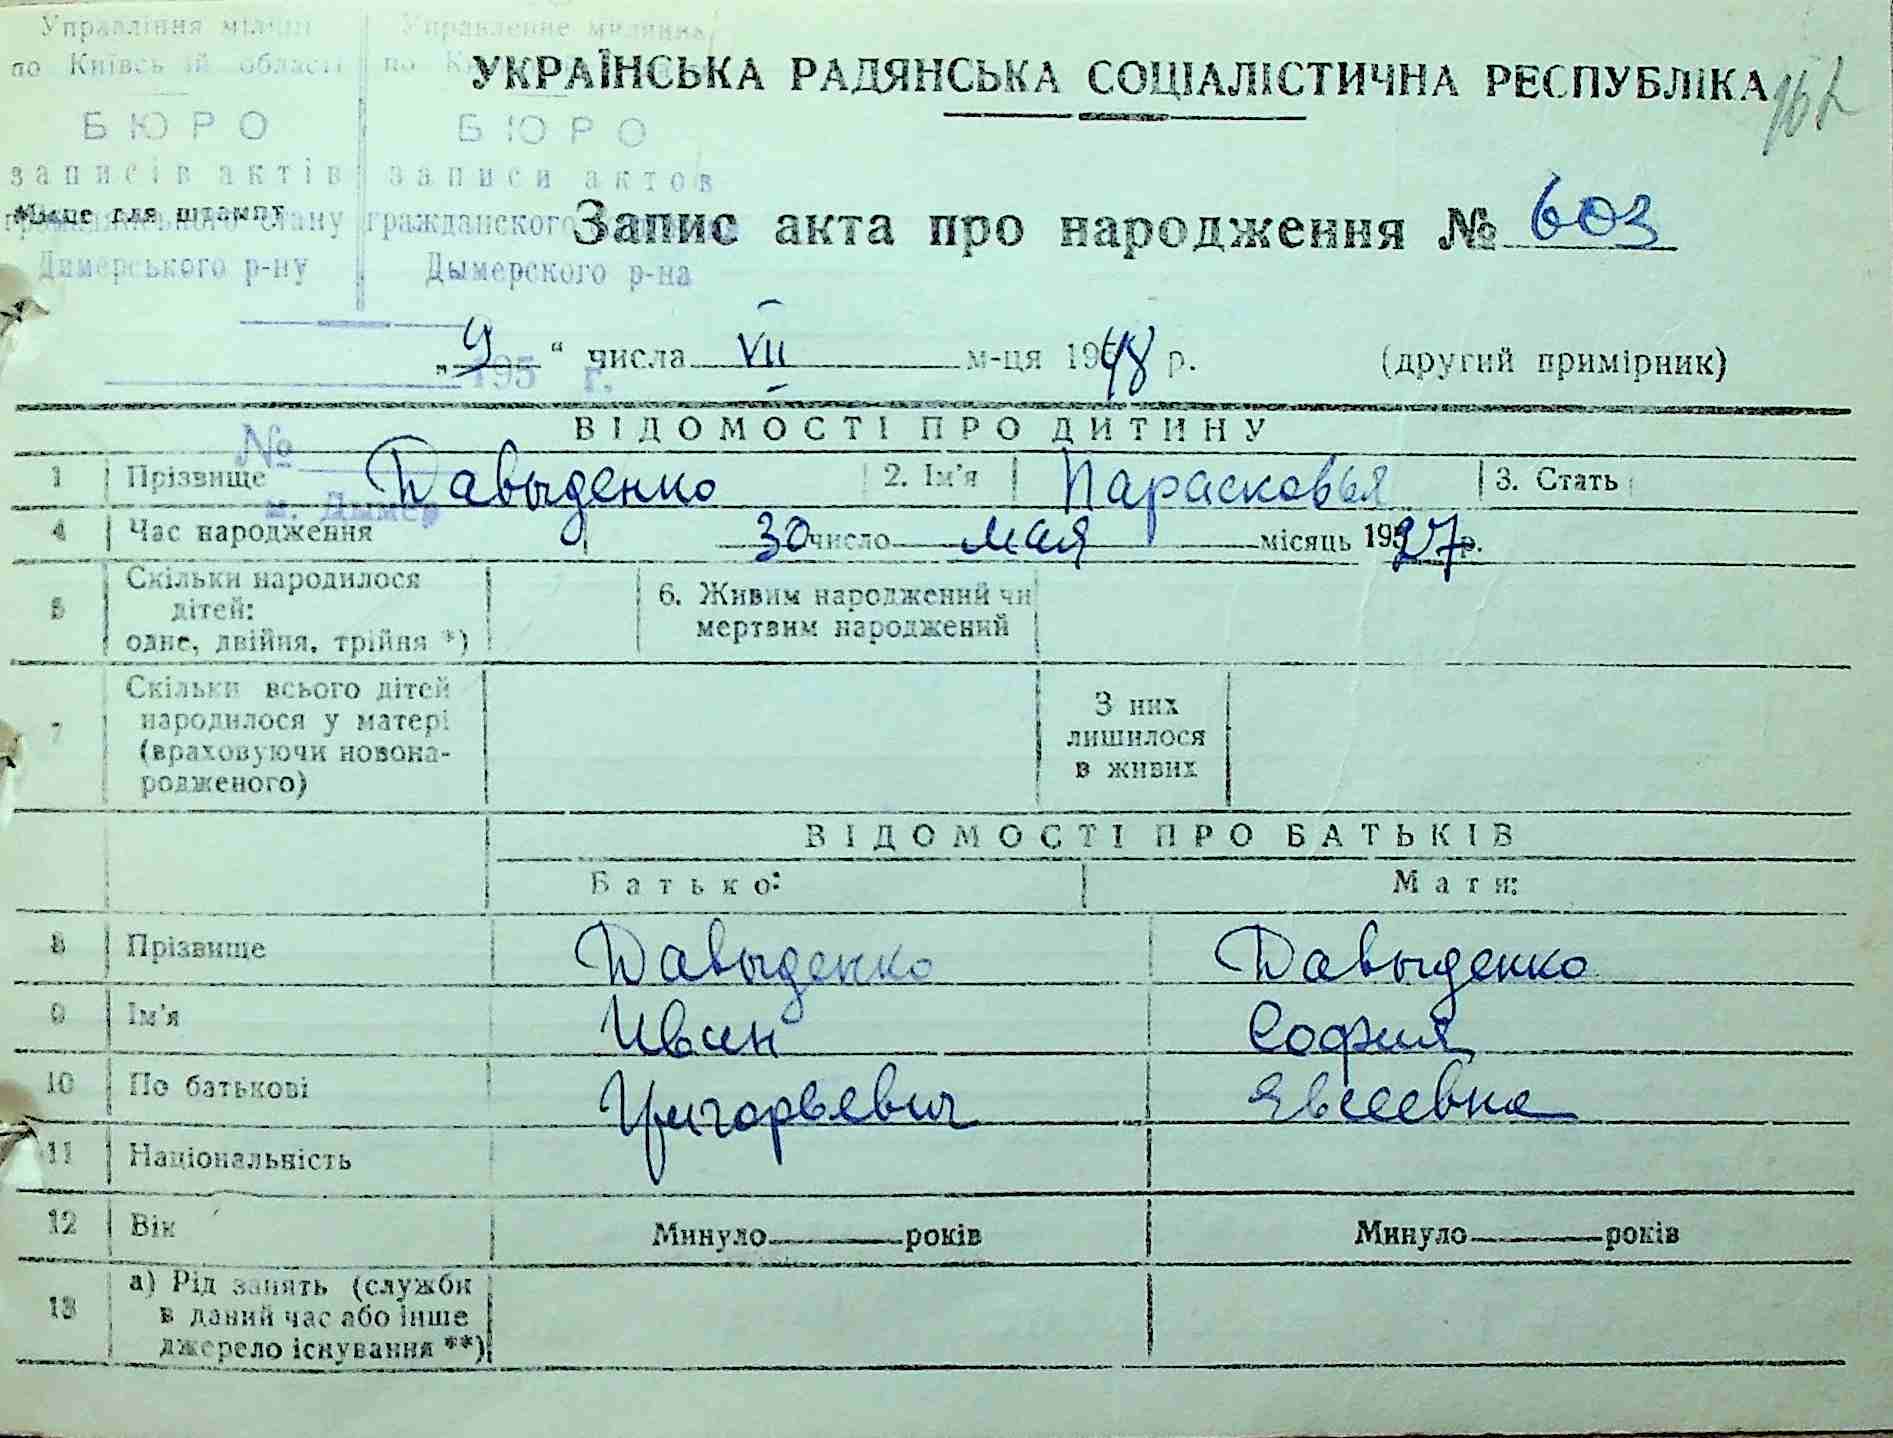 Управління міліції Управление милиции
по Київській області по
УКРАЇНСЬКА РАДЯНСЬКА СОЦІАЛІСТИЧНА РЕСПУБЛІКА
БЮРО БЮРО
записів актів записи актов
Місце для штампу
громадянського стану гражданского
Запис акта про народження № 603
Димерського р-ну Дымерского р-на
„ 9 “ числа VII м-ця 1948 р. (другий примірник)
195 г.
ВІДОМОСТІ ПРО ДИТИНУ
№
1 Прізвище Давыденко 2. Ім'я Парасковья 3. Стать
м. Дымер
4 Час народження 30 число мая місяць 1927 р.
5 Скільки народилося дітей: одне, двійня, трійня *) 6. Живим народжений чи мертвим народжений
7 Скільки всього дітей народилося у матері (враховуючи новонародженого) З них лишилося в живих
ВІДОМОСТІ ПРО БАТЬКІВ
Батько: Мати:
8 Прізвище Давыденко Давыденко
9 Ім'я Иван София
10 По батькові Григорьевич Евсеевна
11 Національність
12 Вік Минуло років Минуло років
13 а) Рід занять (служби в даний час або інше джерело існування **)